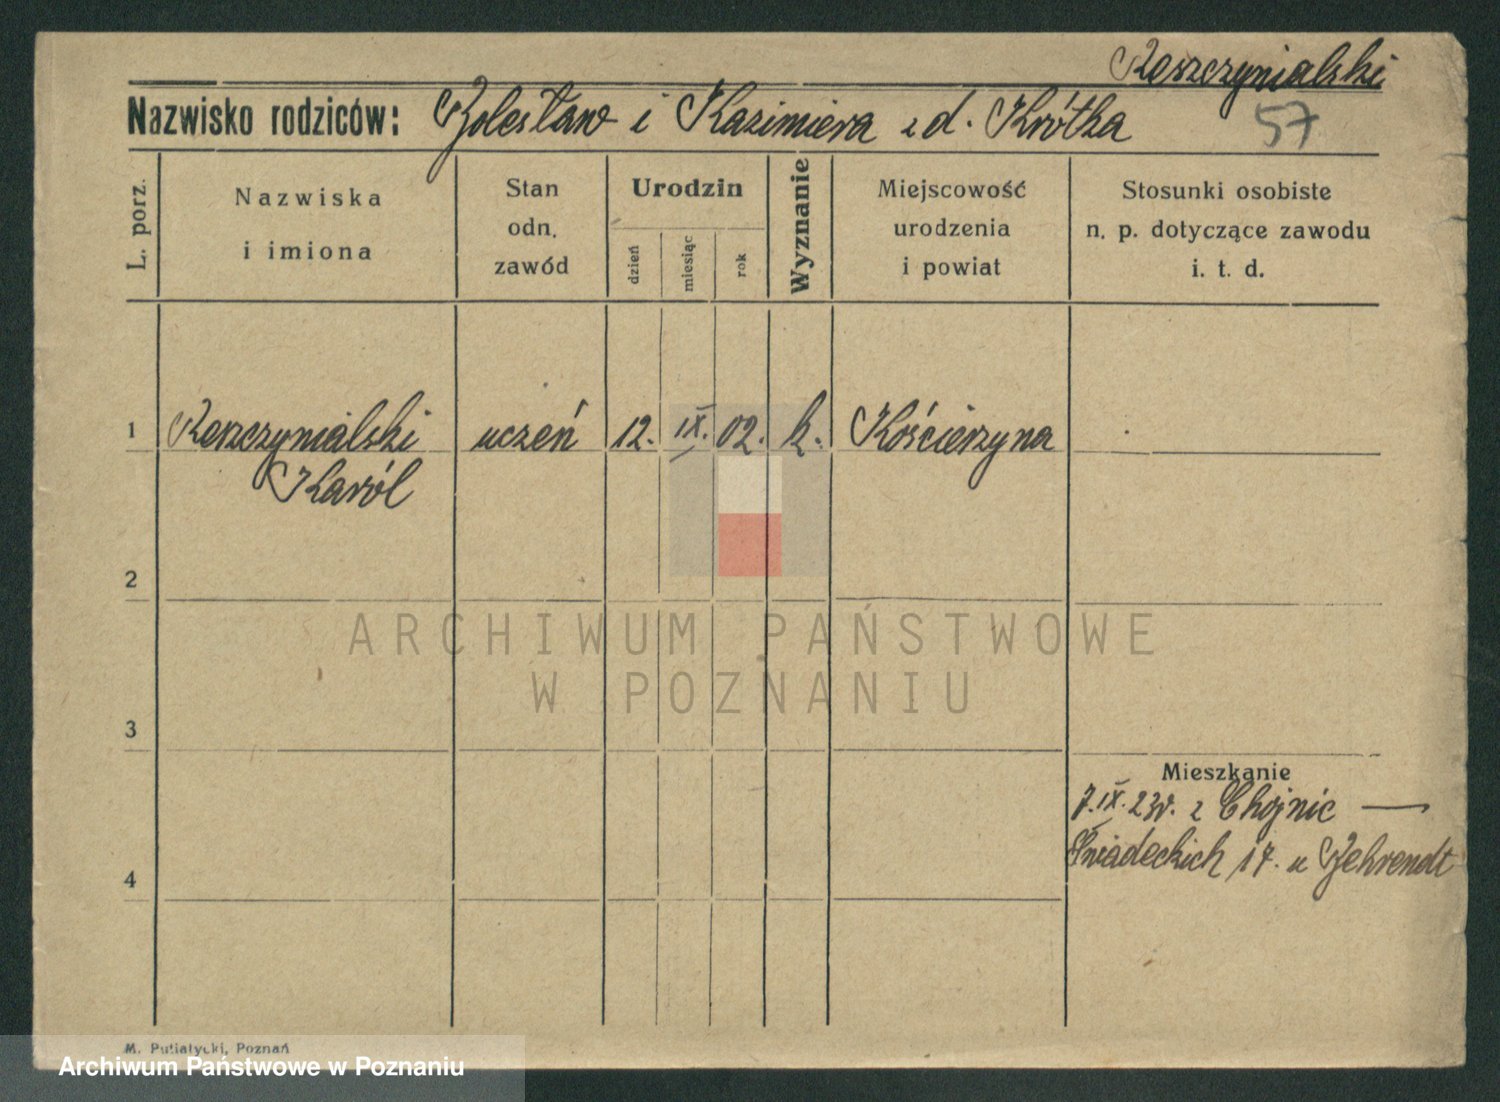 Reszczynialski
Nazwisko rodziców: Bolesław i Kazimiera z d. Krótka
57
L. porz.
Nazwiska
i imiona
Stan
odn.
zawód
Urodzin
dzień
miesiąc
rok
Wyznanie
Miejscowość
urodzenia
i powiat
Stosunki osobiste
n. p. dotyczące zawodu
i. t. d.
1 Reszczynialski uczeń 12. IX. 02. k. Kościerzyna
Karól
2
ARCHIWUM PAŃSTWOWE
W POZNANIU
3
Mieszkanie
7.IX.23r. z Chojnic —
Śniadeckich 17. u Behrendt
4
M. Putiatycki, Poznań
Archiwum Państwowe w Poznaniu